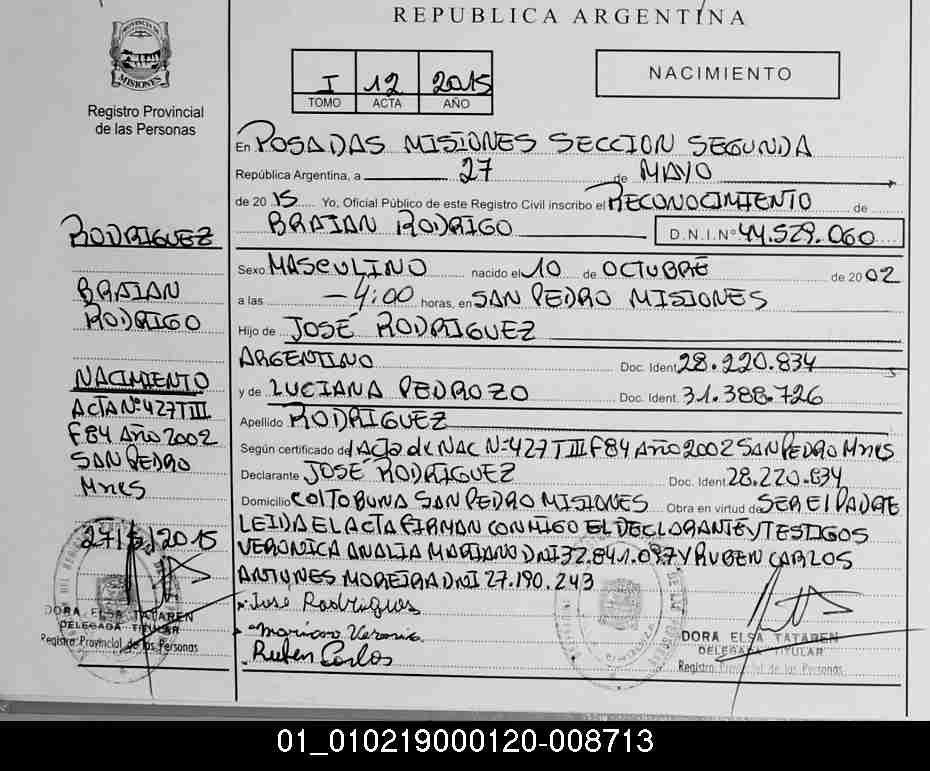 REPUBLICA ARGENTINA
PROVINCIA DE
MISIONES
Registro Provincial
de las Personas
I 12 2015
TOMO ACTA AÑO
NACIMIENTO
En POSADAS MISIONES SECCION SEGUNDA
República Argentina, a 27 de MAYO
de 2015 Yo, Oficial Público de este Registro Civil inscribo el RECONOCIMIENTO de
BRAIAN RODRIGO D.N.I.Nº 44.529.060
Sexo MASCULINO nacido el 10 de OCTUBRE de 2002
a las 4:00 horas, en SAN PEDRO MISIONES
Hijo de JOSÉ RODRIGUEZ
ARGENTINO Doc. Ident. 28.220.834
y de LUCIANA PEDROZO Doc. Ident. 31.388.726
Apellido RODRIGUEZ
Según certificado de Acta de NAC Nº 427 T III F 84 Año 2002 SAN PEDRO Mnes
Declarante JOSÉ RODRIGUEZ Doc. Ident. 28.220.834
Domicilio COL TOBUNA SAN PEDRO MISIONES Obra en virtud de SER El PADRE
LEIDA EL ACTA FIRMAN CONMIGO EL DECLARANTE Y TESTIGOS
VERONICA ANALIA MARIANO DNI 32.841.097 Y RUBEN CARLOS
ANTUNES MOREIRA DNI 27.190.243
José Rodrigues
Mariano Veronica
Ruben Carlos
DORA ELSA TATAREN
DELEGADA TITULAR
Registro Provincial de las Personas
RODRIGUEZ
BRAIAN
RODRIGO
NACIMIENTO
ACTA Nº 427 T III
F 84 Año 2002
SAN PEDRO
Mnes
27/5/2015
DORA ELSA TATAREN
DELEGADA TITULAR
Registro Provincial de las Personas
01_010219000120-008713